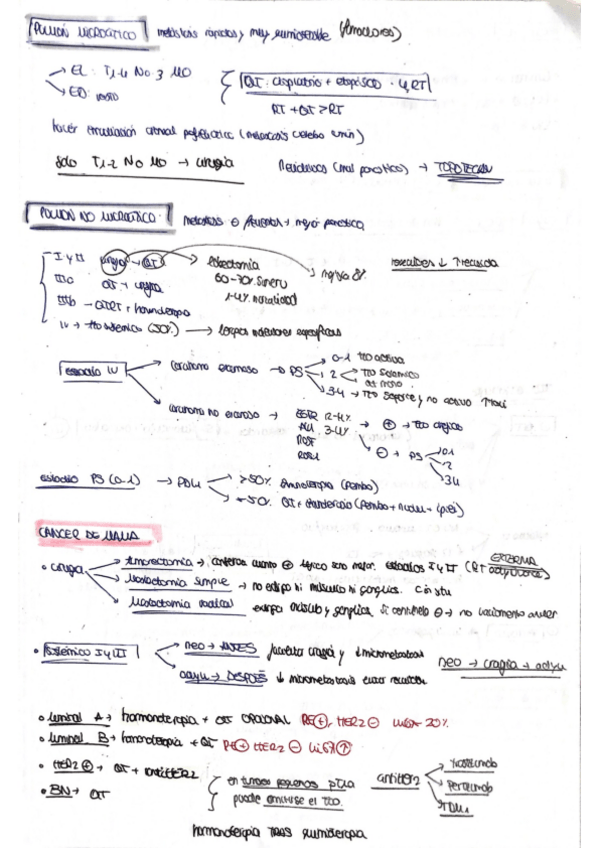 PULMÓN MICROCÍTICO metástasis rápidas y muy quimiosensible (fumadores)
→ EL: T1-4 N0-3 M0
→ ED: resto
QT: cisplatino + etopósido · 4, RT
RT + QT > RT
hacer irradiación craneal profiláctica (metástasis cerebro común)
Solo T1-2 N0 M0 → cirugía
Recidivas (mal pronóstico) → TOPOTECAN
PULMÓN NO MICROCÍTICO: metástasis ⊖ frecuentes + mejor pronóstico
I y II cirugía → QT → lobectomía
60-70% superv
1-4% mortalidad
mejora 8%
↓ recaída
IIIa QT → cirugía
IIIb → QT RT + inmunoterapia
IV → tto sistémico (50%) → terapias moleculares específicas
estadio IV
carcinoma escamoso → PS
0-1 tto activo
2 tto sistémico
QT mono
3-4 → tto soporte y no activo
carcinoma no escamoso →
EGFR 12-4%
ALK 3-4%
ROS1
⊕ → tto dirigido
⊖ → PS
0-1
2
3-4
estadio PS (0-1) → PDL1
>50% inmunoterapia (Pembo)
<50% QT + inmunoterapia (Pembo + nivolu + ipi)
CÁNCER DE MAMA
• cirugía
Tumorectomía → estadios I y II (RT EXTERNA adyuvante)
Mastectomía simple → no extirpa ni músculo ni ganglios. Ca in situ
Mastectomía radical extirpa músculo y ganglios. Si centinela ⊖ → no vaciamiento axilar
• Sistémico I y III
neo → ANTES facilitar cirugía y ↓ micrometástasis
adyu → DESPUÉS ↓ micrometástasis
neo → cirugía → adyu
• luminal A → hormonoterapia + QT OPCIONAL RE⊕, HER2⊖ Ki67< 20%
• luminal B → hormonoterapia + QT RE⊕ HER2⊖ Ki67↑
• HER2⊕ → QT + antiHER2
• BN → QT
en tumores pequeños
puede omitirse el tto.
antiHER2
Trastuzumab
Pertuzumab
TDM1
hormonoterapia TRAS quimioterapia